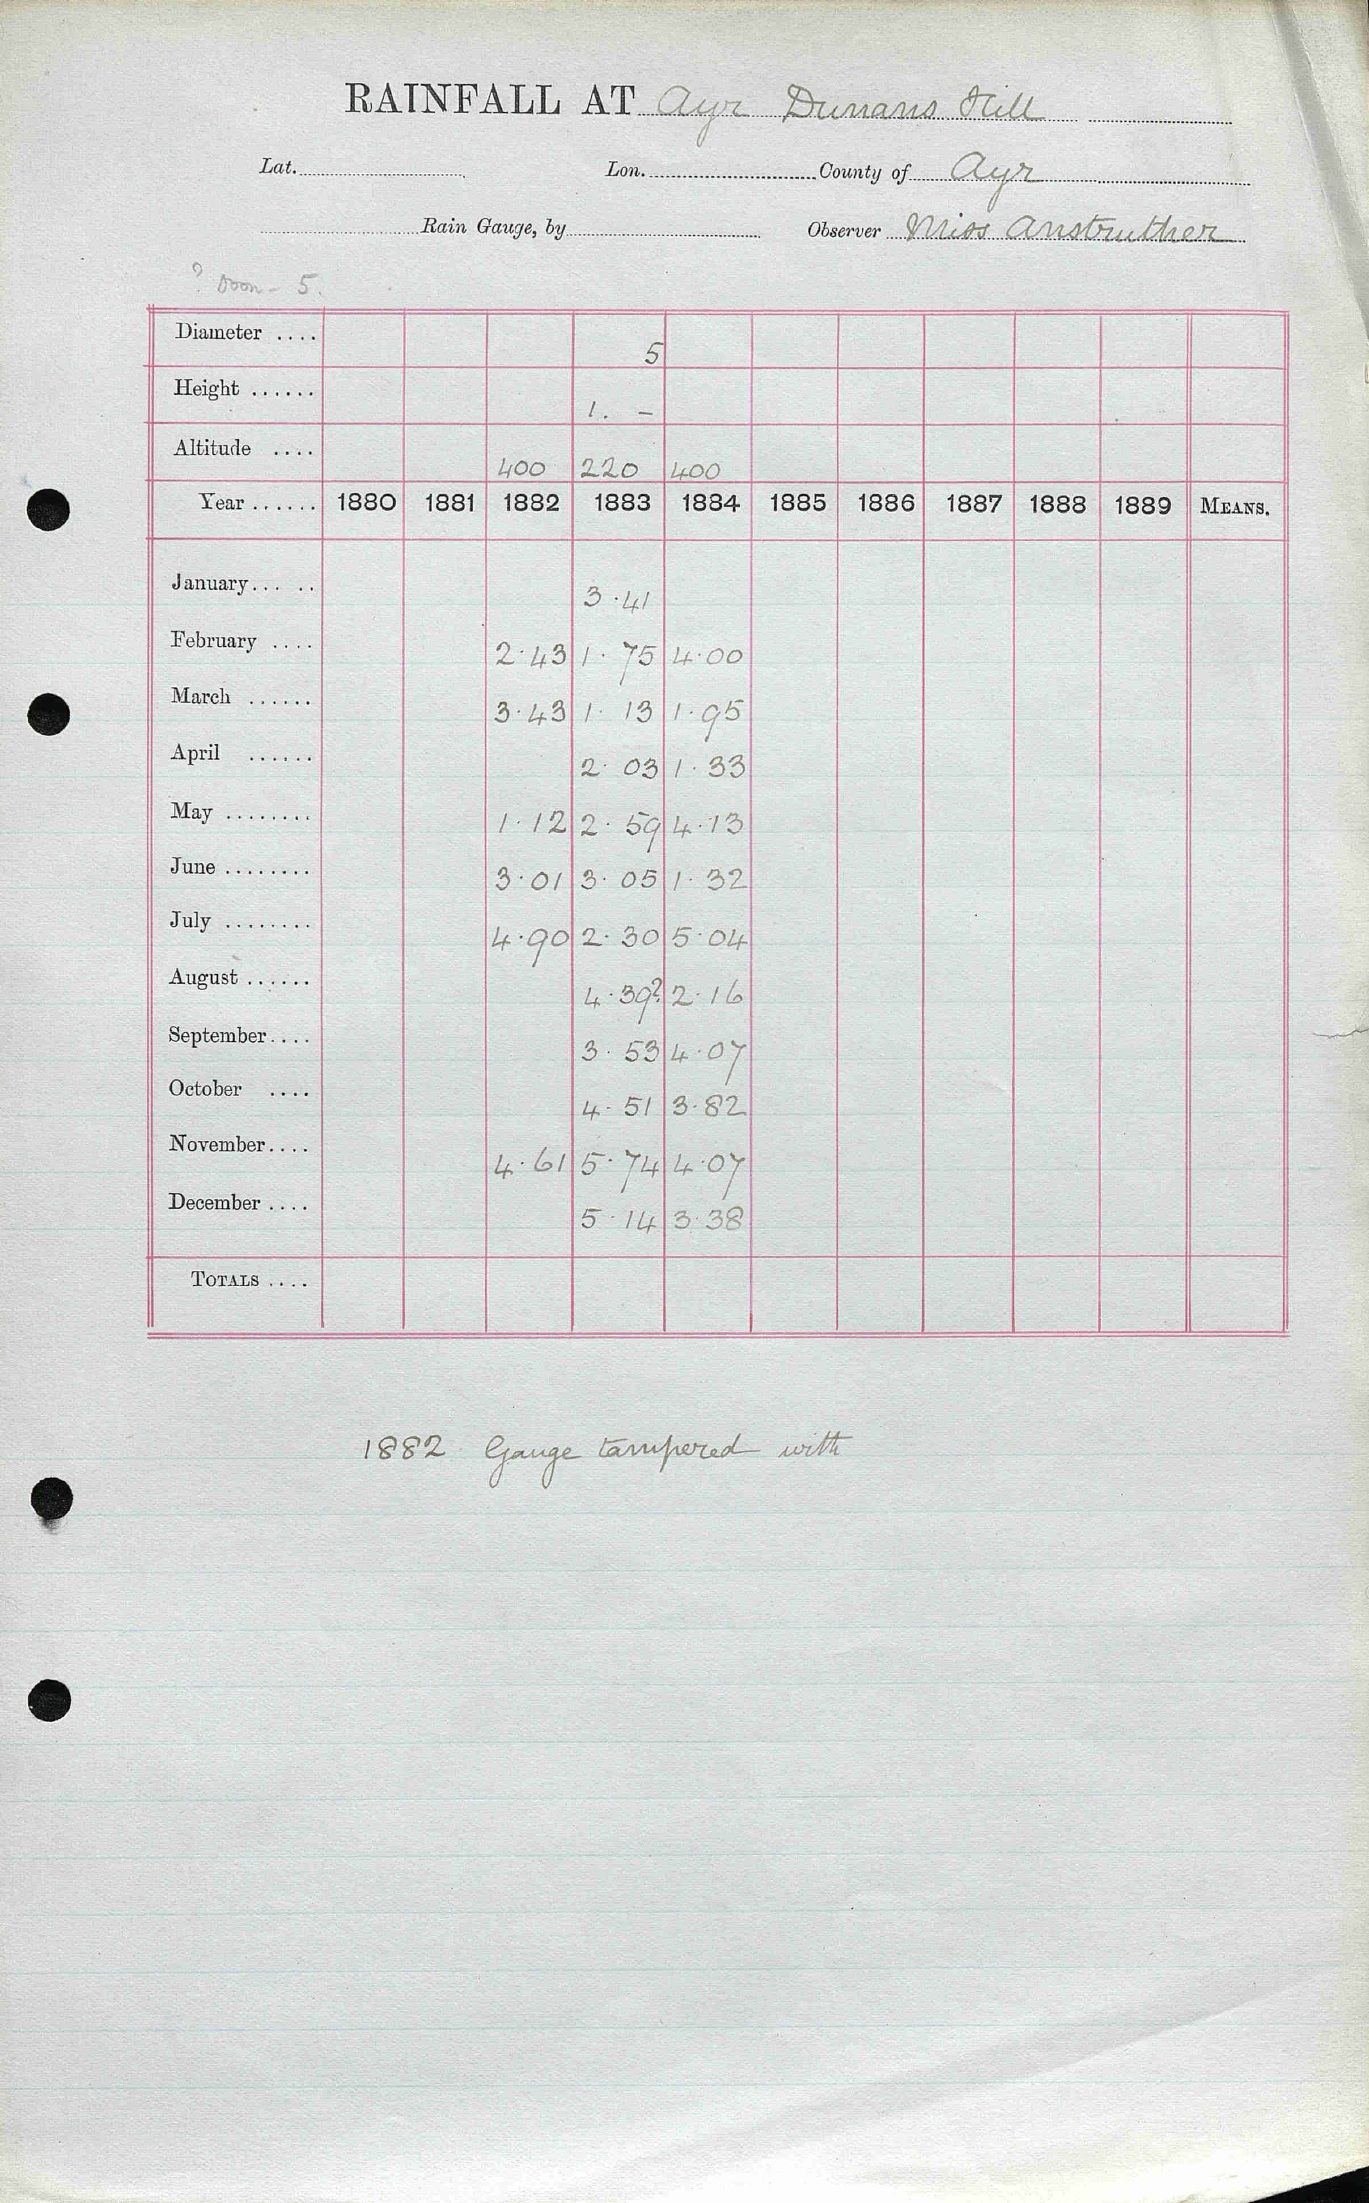 RAINFALL AT Ayr Dunans Hill
Lat. Lon. County of Ayr
Rain Gauge, by Observer Miss Anstruther
? Doon - 5.
Diameter .... 5
Height ...... 1. -
Altitude .... 400 220 400
Year ...... 1880 1881 1882 1883 1884 1885 1886 1887 1888 1889 MEANS.
January... .. 3.41
February .... 2.43 1.75 4.00
March ...... 3.43 1.13 1.95
April ...... 2.03 1.33
May ........ 1.12 2.59 4.13
June ........ 3.01 3.05 1.32
July ........ 4.90 2.30 5.04
August ...... 4.39? 2.16
September.... 3.53 4.07
October .... 4.51 3.82
November.... 4.61 5.74 4.07
December .... 5.14 3.38
TOTALS ....
1882 Gauge tampered with